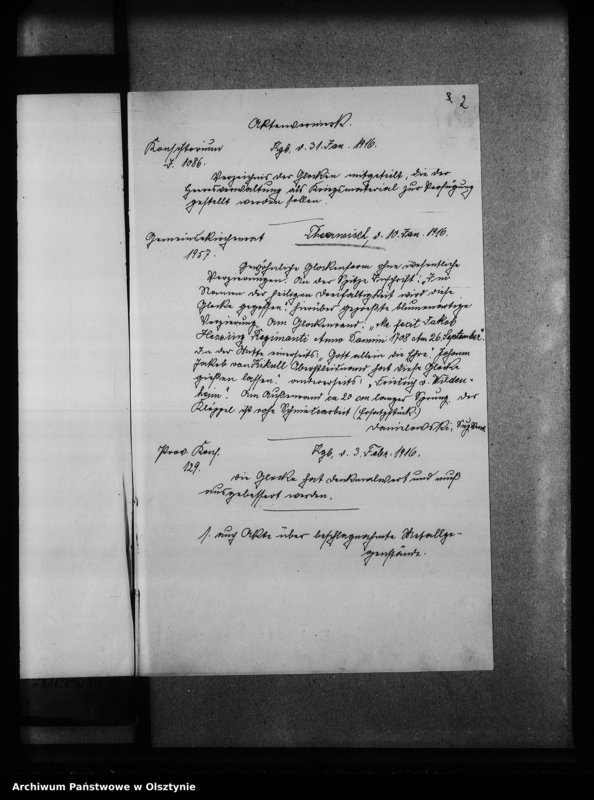 2
Aktenvermerk.
Konsistorium Kgb. d. 31. Jan. 1916.
J. 1086.
Verzeichnis der Glocken mitgeteilt, die der
Heeresverwaltung als Kriegsmaterial zur Verfügung
gestellt werden sollen.
Gemeindekirchenrat d. 10. Jan. 1916.
1957.
Gewöhnliche Glockenform ohne wesentliche
Verzierungen. An der Spitze Inschrift: „Im
Namen der heiligen Dreifaltigkeit wird diese
Glocke gegossen. Hierüber gepreßte blumenartige
Verzierung. Am Glockenrand: „Me fecit Jakob
Regimonti Anno Domini 1708 den 26. September."
In der Mitte einerseits, Gott allein die Ehre, Johann
Jakob von Oberstleutnant hat diese Glocke
gießen lassen", andererseits, „ v. Wilden-
heim". Am Außenrand ca 20 cm langer Sprung. Der
Klöppel ist rohe Schmiedearbeit (Ersatzstück)
Danielowski,
Prov. Kons. Kgb, d. 3. Febr. 1916.
129.
Die Glocke hat Denkmalwert und muß
ausgebessert werden.
s. auch Akte über beschlagnahmte Metallge-
genstände.
Archiwum Państwowe w Olsztynie